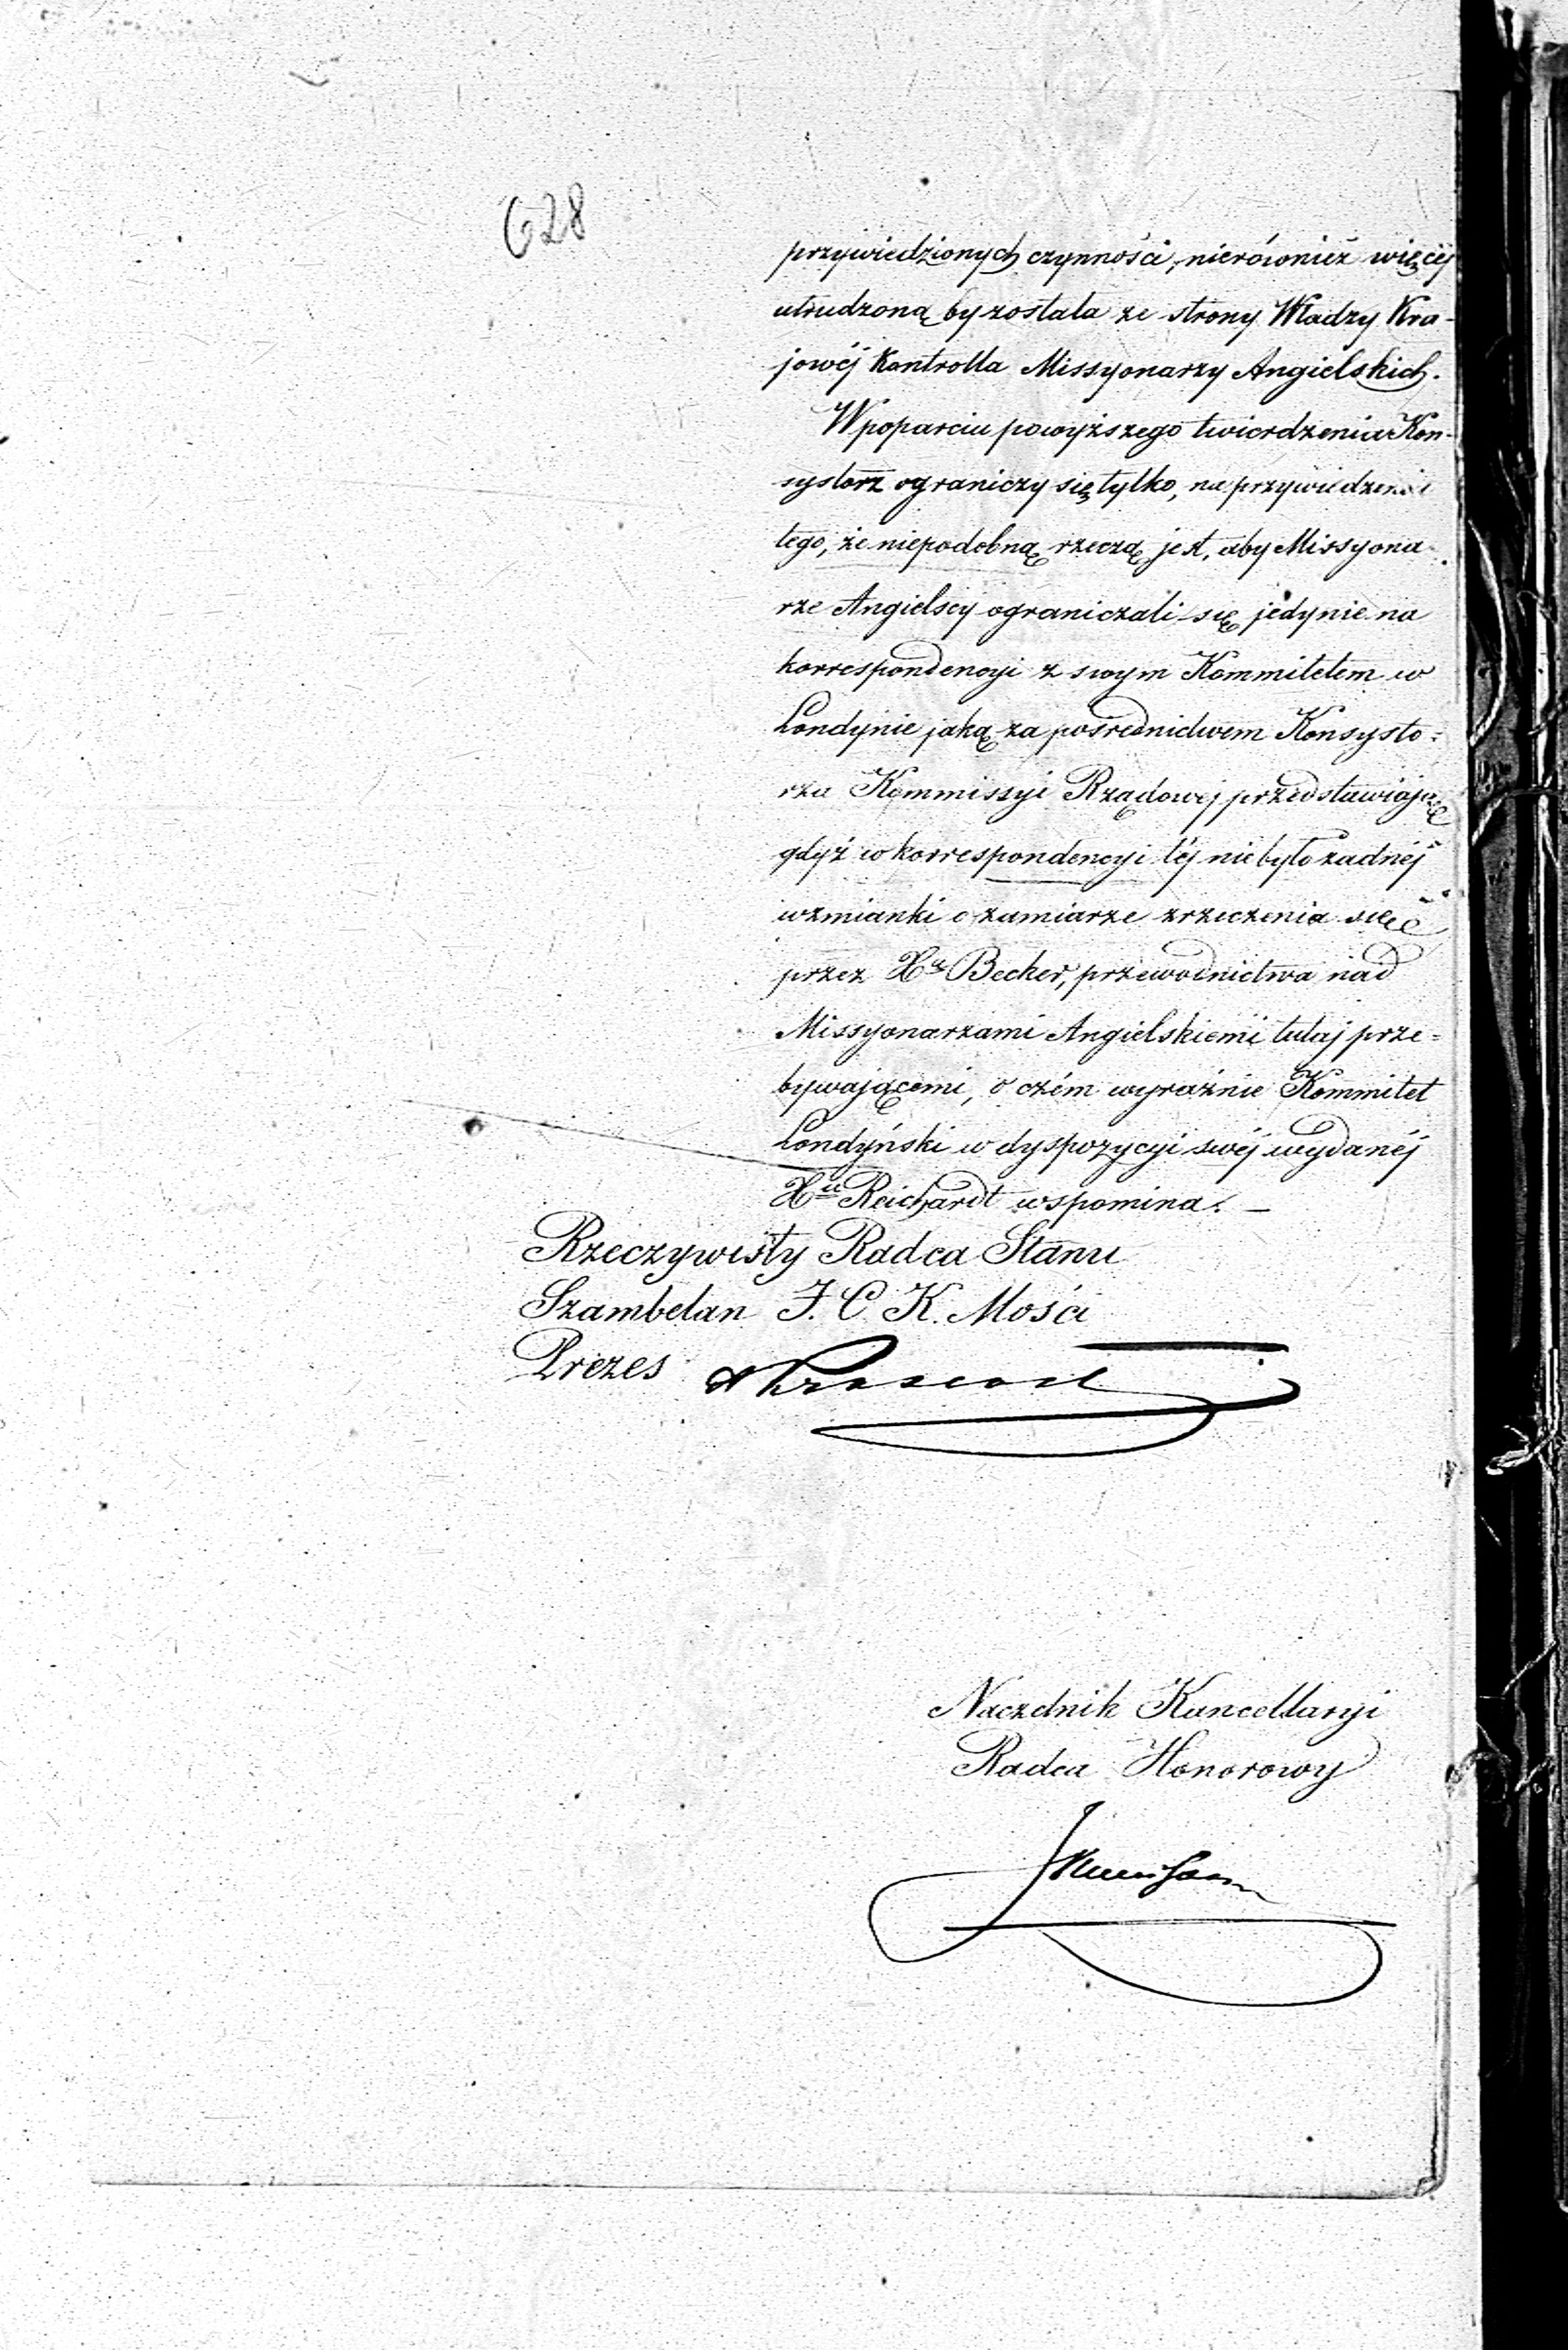 628
przywiedzionych czynności, nierównież więcéj
utrudzoną by została ze strony Władzy Kra-
jowéj Kontrolla Missyonarzy Angielskich.
W poparciu powyższego twierdzenia Kon-
systorz ograniczy się tylko, na przywiedzeniu
tego, że niepodobną rzeczą jest, aby Missyona-
rze Angielscy ograniczali się jedynie na
korrespondencyi z swym Kommitetem w
Londynie jaką za pośrednictwem Konsysto=
rza Kommissyi Rządowej przedstawiają
gdyż w korrespondencyi téj nie było żadnéj
wzmianki o zamiarze zrzeczenia się
przez Xa Becker, przewodnictwa nad
Missyonarzami Angielskiemi tutaj prze=
bywającemi, o czém wyraźnie Kommitet
Londyński w dyspozycyi swéj wydanéj
Xu Reichardt wspomina. —
Rzeczywisty Radca Stanu
Szambelan J. C. K. Mości
Prezes
Naczelnik Kancellaryi
Radca Honorowy